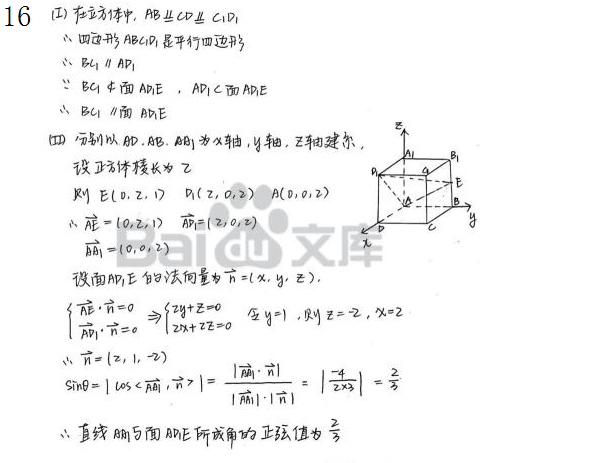 16 (I) 在立方体中, AB ⫽ CD ⫽ C₁D₁
∴ 四边形ABC₁D₁是平行四边形
∴ BC₁ ∥ AD₁
∵ BC₁ ⊄ 面AD₁E , AD₁ ⊂ 面AD₁E
∴ BC₁ ∥ 面AD₁E
(II) 分别以AD, AB, AA₁为x轴, y轴, z轴建系,
设正方体棱长为2
则 E(0,2,1) D₁(2,0,2) A(0,0,2)
∴ →AE = (0,2,1) →AD₁ = (2,0,2)
→AA₁ = (0,0,2)
设面AD₁E的法向量为 →n = (x, y, z),
{ →AE · →n = 0 ⇒ { 2y+z=0 令y=1, 则z=-2, x=2
→AD₁ · →n = 0 2x+2z=0
∴ →n = (2, 1, -2)
sinθ = | cos<→AA₁, →n> | = |→AA₁ · →n| / |→AA₁| · |→n| = | -4 / 2×3 | = 2/3
∴ 直线AA₁与面AD₁E所成角的正弦值为 2/3
z
A₁
B₁
D₁
C₁
E
A
B
D
C
x
y
Baidu文库